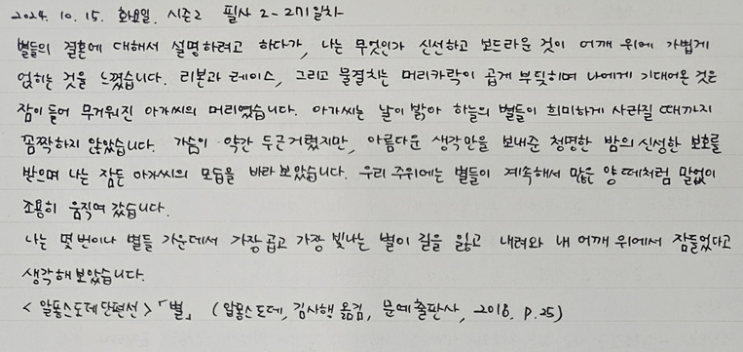 2024. 10. 15. 화요일. 시즌2 필사 2-271일차
별들의 결혼에 대해서 설명하려고 하다가, 나는 무엇인가 신선하고 보드라운 것이 어깨 위에 가볍게
얹히는 것을 느꼈습니다. 리본과 레이스, 그리고 물결치는 머리카락이 곱게 부딪히며 나에게 기대어온 것은
잠이 들어 무거워진 아가씨의 머리였습니다. 아가씨는 날이 밝아 하늘의 별들이 희미하게 사라질 때까지
꼼짝하지 않았습니다. 가슴이 약간 두근거렸지만, 아름다운 생각만을 보내준 청명한 밤의 신성한 보호를
받으며 나는 잠든 아가씨의 모습을 바라보았습니다. 우리 주위에는 별들이 계속해서 많은 양떼처럼 말없이
조용히 움직여 갔습니다.
나는 몇 번이나 별들 가운데서 가장 곱고 가장 빛나는 별이 길을 잃고 내려와 내 어깨 위에서 잠들었다고
생각해보았습니다.
<알퐁스도데단편선>「별」 (알퐁스도데, 김사행 옮김, 문예출판사, 2018, p.25)